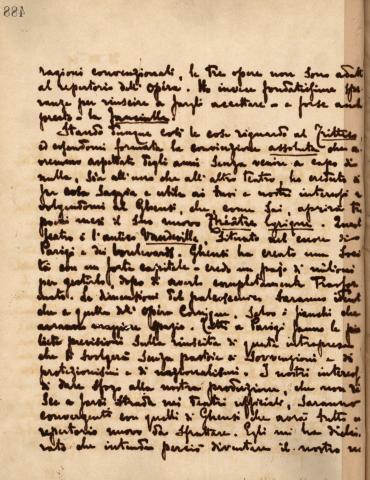 488
ragioni convenzionali, le tre opere non sono adatte
al repertorio dell'Opéra. Ho invece fondatissime spe
ranze per riuscire a fargli accettare - e forse anche
presto - la Fanciulla.
Stando dunque così le cose riguardo al Trittico
ed essendomi formata la convinzione assoluta che a
vremmo aspettato degli anni senza venire a capo di
nulla, sia all'uno che all'altro teatro, ho creduto di
far cosa saggia e utile ai tuoi e nostri interessi
volgendomi al Gheusi, che, come sai, aprirà tra
pochi mesi il suo nuovo Théâtre Lyrique. Quel
teatro è l'antico Vaudeville, situato nel cuore di
Parigi e dei boulevards. Gheusi ha creato una Socie
tà con un forte capitale - credo un pajo di milioni
per gestirlo, dopo di averlo completamente trasfor
mato. Le dimensioni del palcoscenico saranno identi
che a quelle dell'Opéra Comique, salvo i fianchi che
avranno maggiore spazio. Tutti a Parigi fanno le più
liete previsioni sulla riuscita di questa intrapresa
che si svolgerà senza pastoie di sovvenzioni e di
protezionismi e di nazionalismi. I nostri interessi
di dare sfogo alla nostra produzione, che non rie
sce a farsi strada nei teatri ufficiali, saranno
convergenti con quelli di Gheusi che avrà tutto un
repertorio nuovo da sfruttare. Egli mi ha dichia
rato che intende perciò diventare il nostro